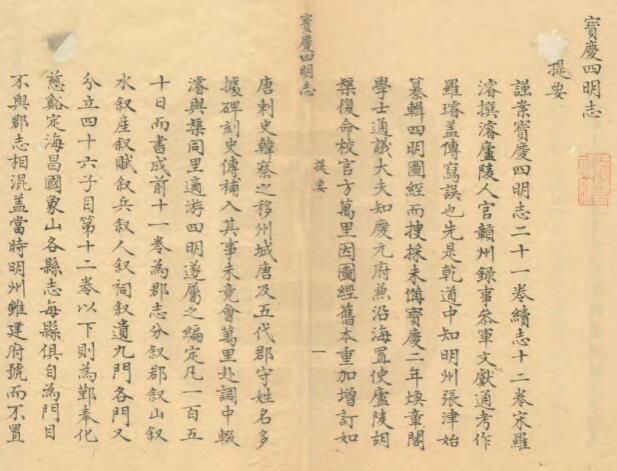 寶慶四明志
提要
謹案寶慶四明志二十一卷續志十二卷宋羅
濬撰濬廬陵人官贛州錄事叅軍文獻通考作
羅璿蓋傳寫誤也先是乾道中知明州張津始
纂輯四明圖經而搜採未備寶慶二年煥章閣
學士通議大夫知慶元府兼沿海置使廬陵胡
榘復命校官方萬里因圖經舊本重加增訂如
寶慶四明志
提要
一
唐刺史韓察之移州城唐及五代郡守姓名多
據碑刻史傳補入其事未竟會萬里赴調中輟
濬與榘同里適游四明遂屬之編定凡一百五
十日而書成前十一卷為郡志分叙郡叙山叙
水叙產叙賦叙兵叙人叙祠叙遺九門各門又
分立四十六子目第十二卷以下則為鄞奉化
慈谿定海昌國象山各縣志每縣俱自為門目
不與郡志相混蓋當時明州雖建府號而不置